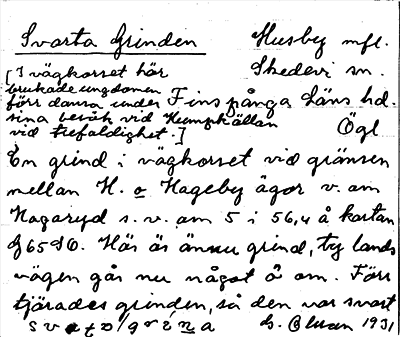 Svarta Grinden Husby mfl.
[I vägkorset här Skedevi sn.
brukade ungdomen
förr dansa under Finspånga läns hd.
sina besök vid Kempkällan
vid trefaldighet.] Ögl
En grind i vägkorset vid gränsen
mellan H. o Hageby ägor v. om
Hagaryd s. v. om 5 i 56,4 å kartan
G65SO. Här är ännu grind, ty lands
vägen går nu något ö om. Förr
tjärades grinden, så den var svart
1931